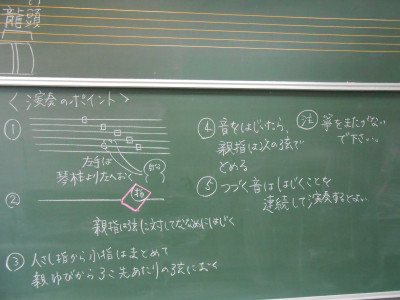 龍頭
〈演奏のポイント〉
①
左手は
琴柱より左へおく
②
指
親指は弦に対してななめにはじく
③ 人さし指から小指はまとめて
親ゆびから3こ先あたりの弦におく
④ 音をはじいたら、
親指は次の弦で
とめる
⑤ つづく音ははじくことを
連続して演奏するとよい
注 箏をまたがない
で下さい。